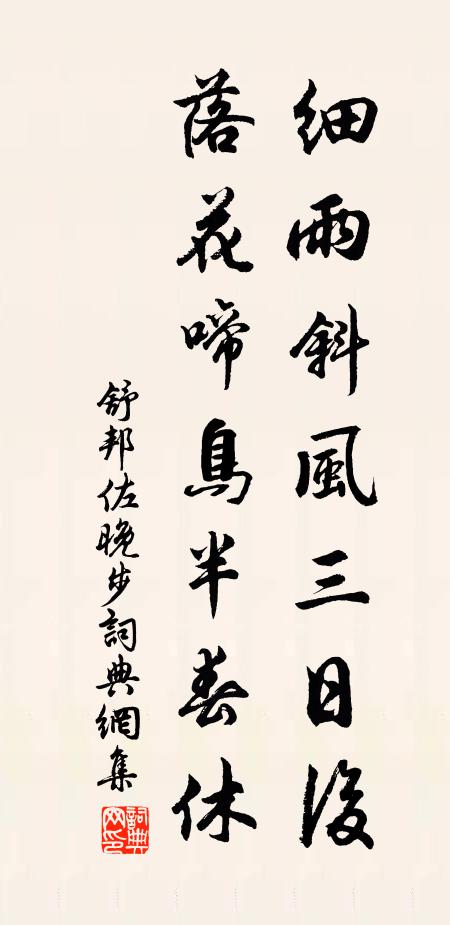 細雨斜風三日後
落花啼鳥半春休
舒邦佐晚步詞典網集
詞典网印